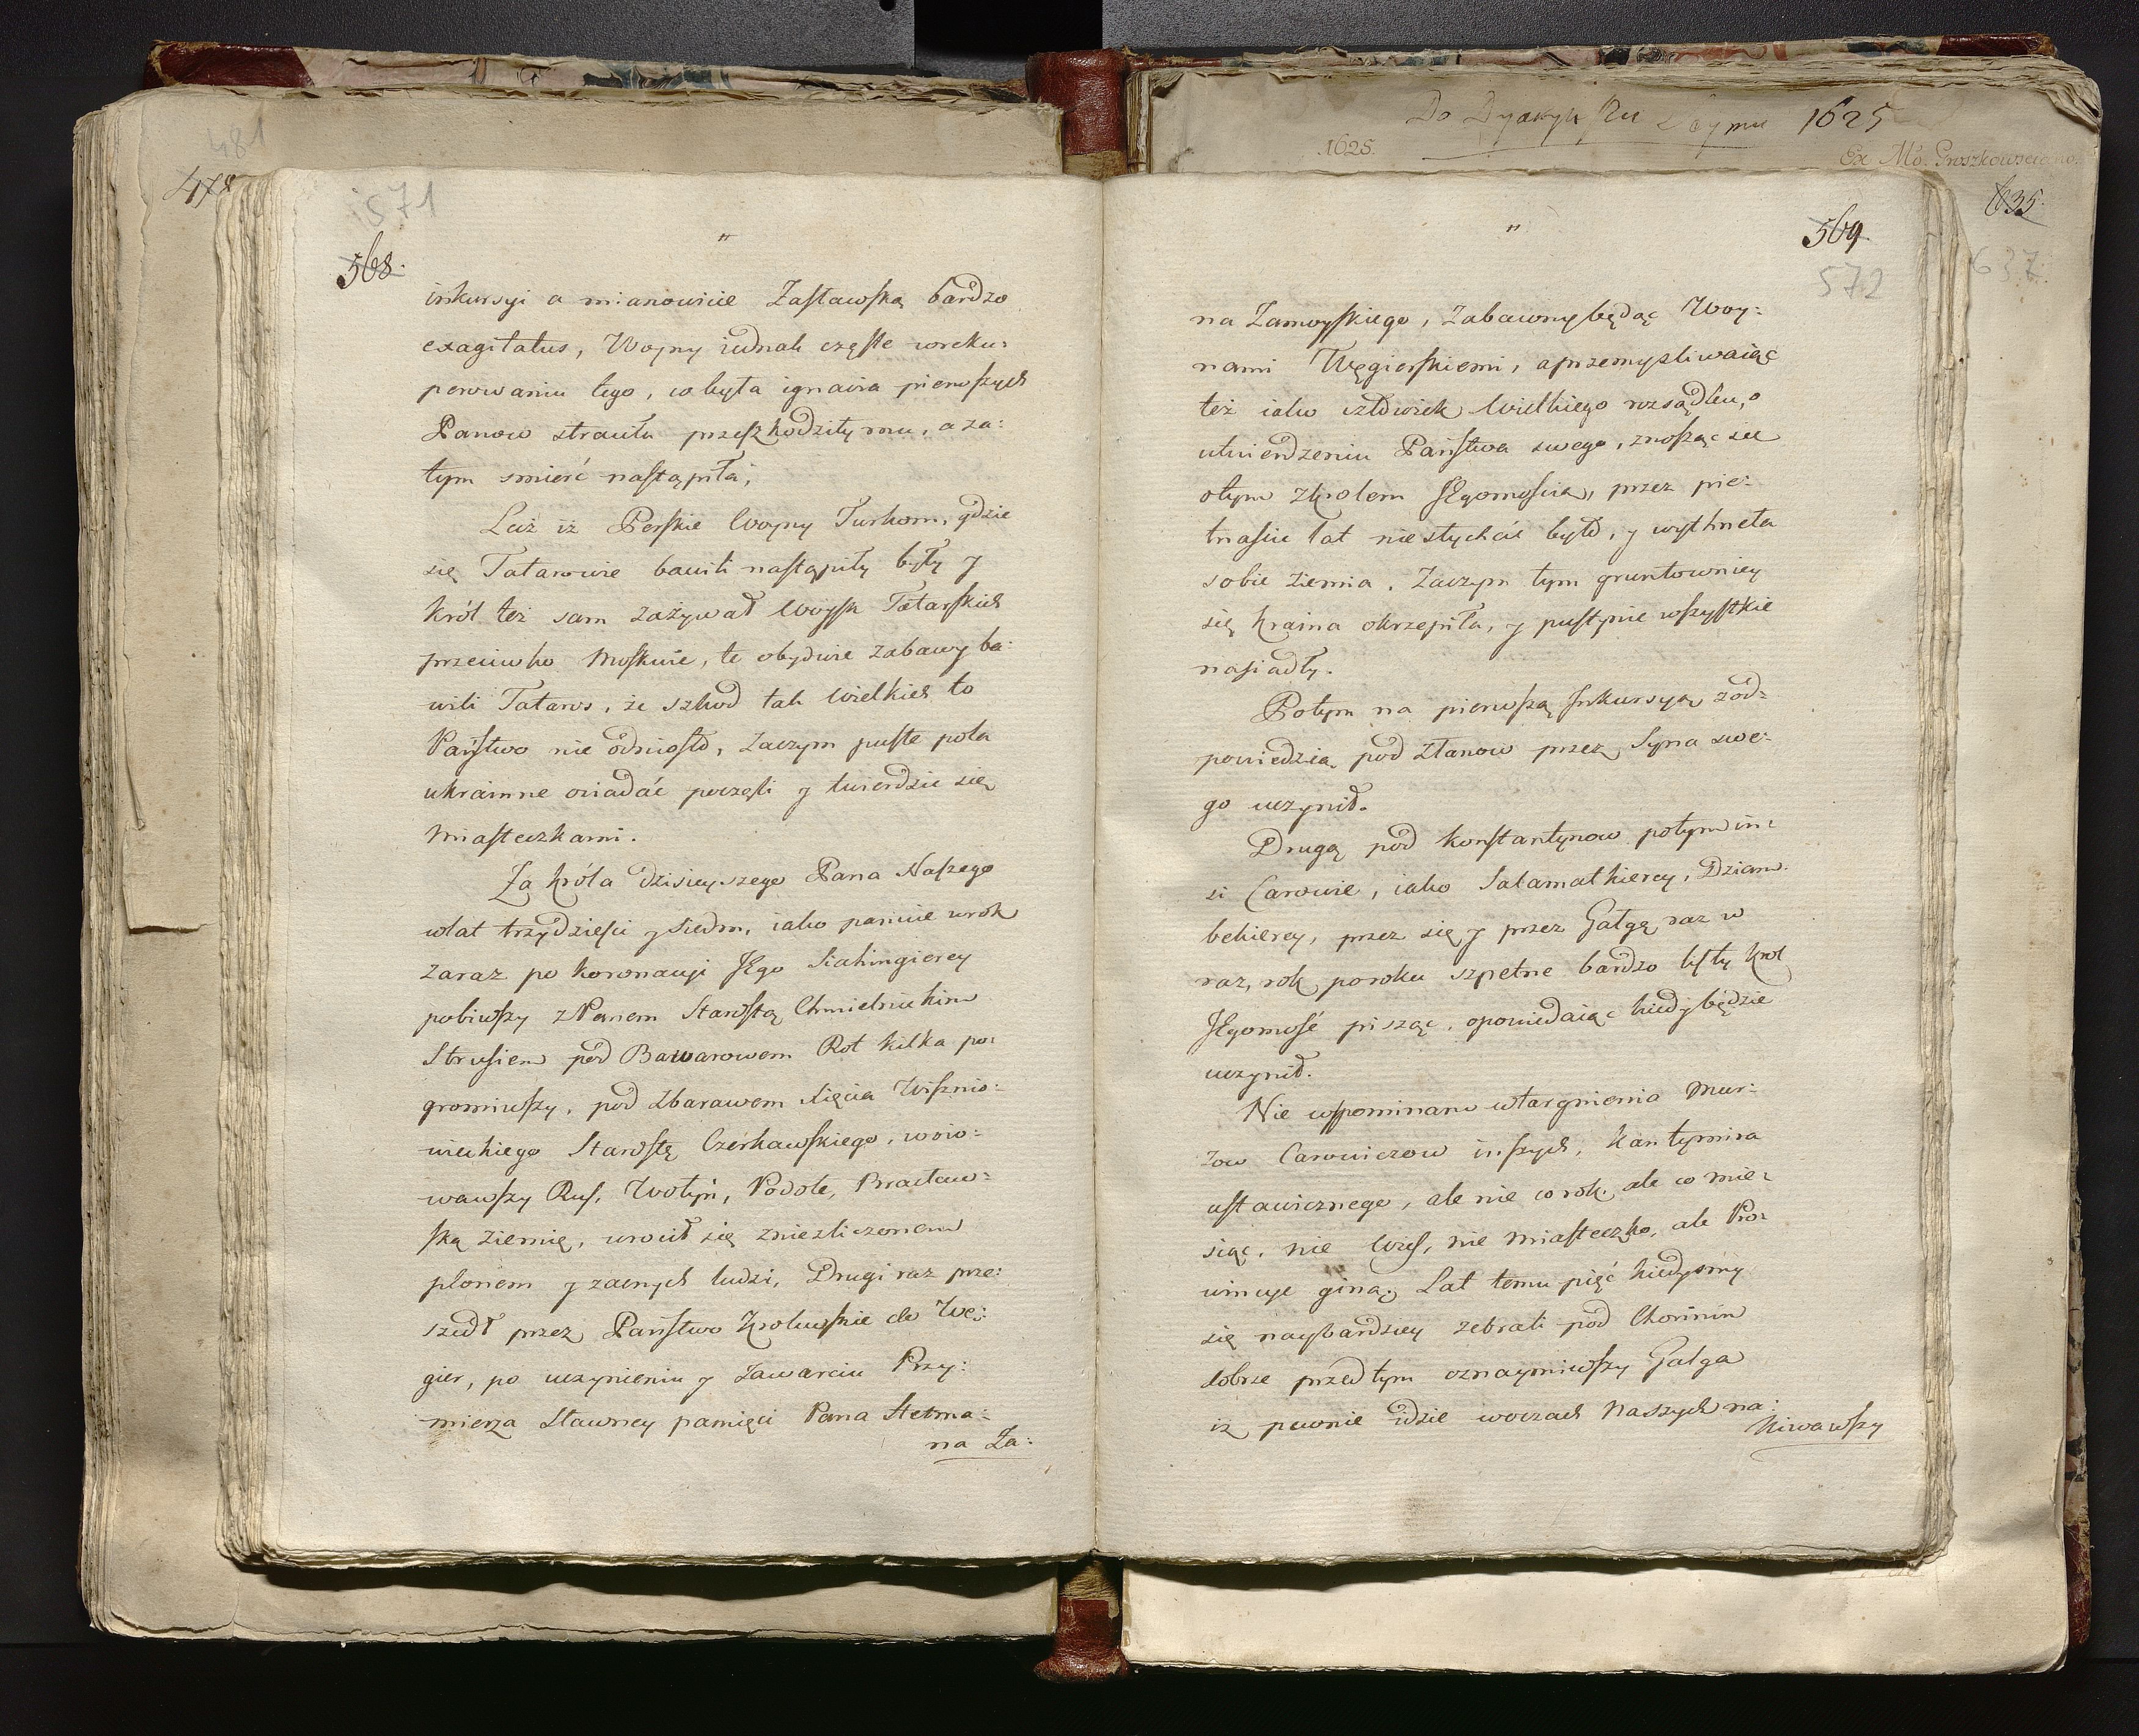 481
478
571
568.
"
inkursyi a mianowicie Zasławską bardzo
exagitatus, Woyny iednak częste wreku:
perowaniu tego, co była ignavia pierwszych
Panow straciła przeszkodziły mu, a za:
tym smierć nastąpiła;
Lecz iz Perskie Woyny Turkom, gdzie
się Tatarowie bawili nastąpiły były y
król też sam zażywał Woysk Tatarskich
przeciwko Moskwie, te obydwie zabawy ba:
wili Tatarow, że szkod tak wielkich to
Państwo nie odniosło, zaczym puste pola
ukrainne osiadać poczęli y twierdzic się
Miasteczkami.
Za króla dzisieyszego Pana Naszego
wlat trzydzieści y siedm, iako panuie wrok
zaraz po koronacyi JEgo Siahingierey
pobiwszy z Panem Starostą Chmielnickim
Strusiem pod Bawarowem Rot kilka po:
gromiwszy, pod Zbarawem Xięcia Wiszno:
wieckiego Starostę Czerkawskiego, woio:
wawszy Ruś, Wołyń, Podole, Bracław:
ską ziemię, wrocił się zniezliczonem
plonem y zacnych ludzi, Drugi raz prze:
szedł przez Państwo Krolewskie do We:
gier, po uczynieniu y zawarciu Przy:
mierza Sławney pamięci Pana Hetma:
na Za:
Do Dyaryuszu Seymu 1625
1625.
Ex Ms. Proszkowsciano.
635.
637.
"
569
572
na Zamoyskiego, Zabawny będąc Woy:
nami Węgierskiemi, a przemysliwaiąc
też iako człowiek Wielkiego rozsądku, o
utwierdzeniu Państwa swego, znosząc się
otym zkrolem JEgomoscią, przez pie:
tnascie lat nie słychać było, y wytchneła
sobie ziemia. Zaczym tym gruntowniey
się kraina okrzepiła, y pustynie wszystkie
nasiadły.
Potym na pierwszą Jnkursyą zod:
powiedzią pod Złanow przez Syna swe:
go uczynił.
Drugą pod Konstantynow potym in:
si Carowie, iako Salamatkierey, Dziam:
bekierey, przez się y przez Gałgą raz w
raz, rok poroku szpetne bardzo listy Krol
JEgomość pisząc, opowiedaiąc kiedy będzie
uczynił.
Nie wspominam wtargnienia Mur:
zow Carowiczow inszych, Kantymira
ustawicznego, ale nie co rok, ale co mie:
siąc, nie Wieś, nie Miasteczko, ale Pro:
wincye giną. Lat temu pięć kiedysmy
się naybardziey zebrali pod Chocinin
dobrze przed tym oznaymiwszy Gałga
iz pewnie idzie woczach Naszych na:
kiwawszy